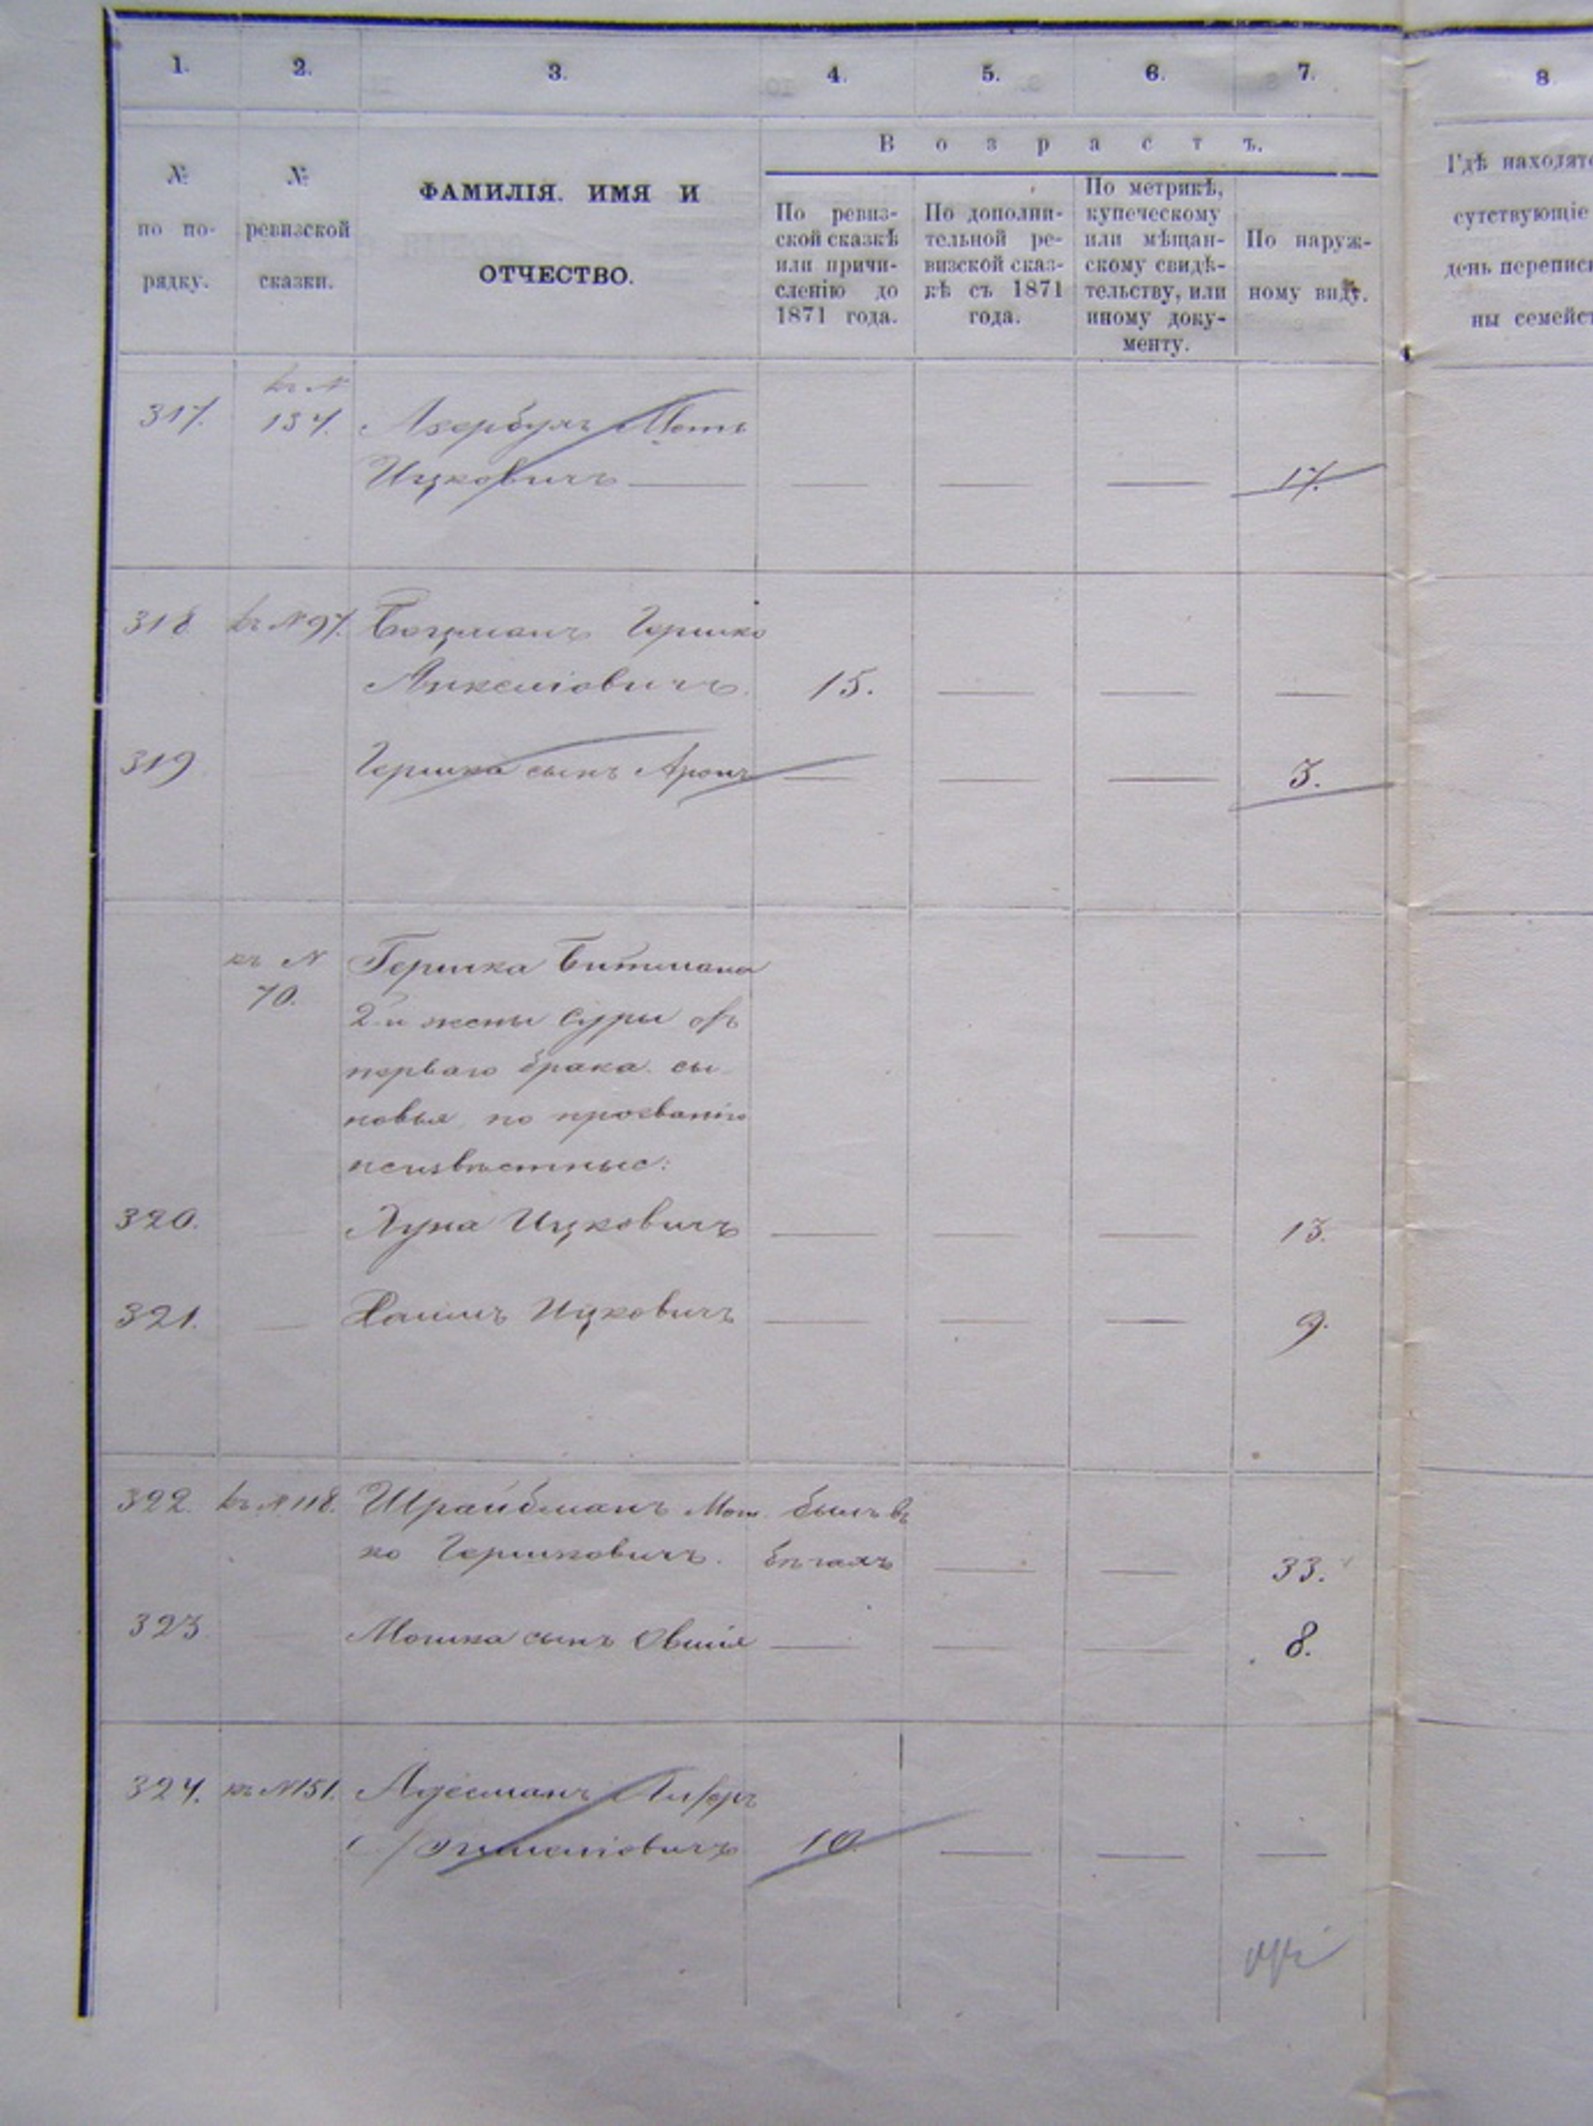 1. 2. 3. 4. 5. 6. 7. 8
В о з р а с т ъ.
№
по по-
рядку.
№
ревизской
сказки.
ФАМИЛІЯ. ИМЯ И
ОТЧЕСТВО.
По ревиз-
ской сказкѣ
или причи-
сленію до
1871 года.
По дополни-
тельной ре-
визской сказ-
кѣ съ 1871
года.
По метрикѣ,
купеческому
или мѣщан-
скому свидѣ-
тельству, или
иному доку-
менту.
По наруж-
ному виду.
Гдѣ находятс
сутствующіе
день перепис
ны семейст
къ №
317. 134.
Ицковичъ — — — — 17.
318 къ № 97. Гершко
15. — — —
319 Гершка сынъ Аронъ — — — 3.
къ № Гершка Битмана
70. 2-й жены Суры отъ
перваго брака сы-
новья, по прозванію
неизвѣстные:
320. — Лупа Ицковичъ — — — 13.
321. — Хаимъ Ицковичъ — — — 9.
322. къ № 118. Шрайбманъ Мош былъ въ
ко Гершковичъ. бѣгахъ — — 33.
323 Мошка сынъ Овшія — — — 8.
324. къ № 151.
10 — — —